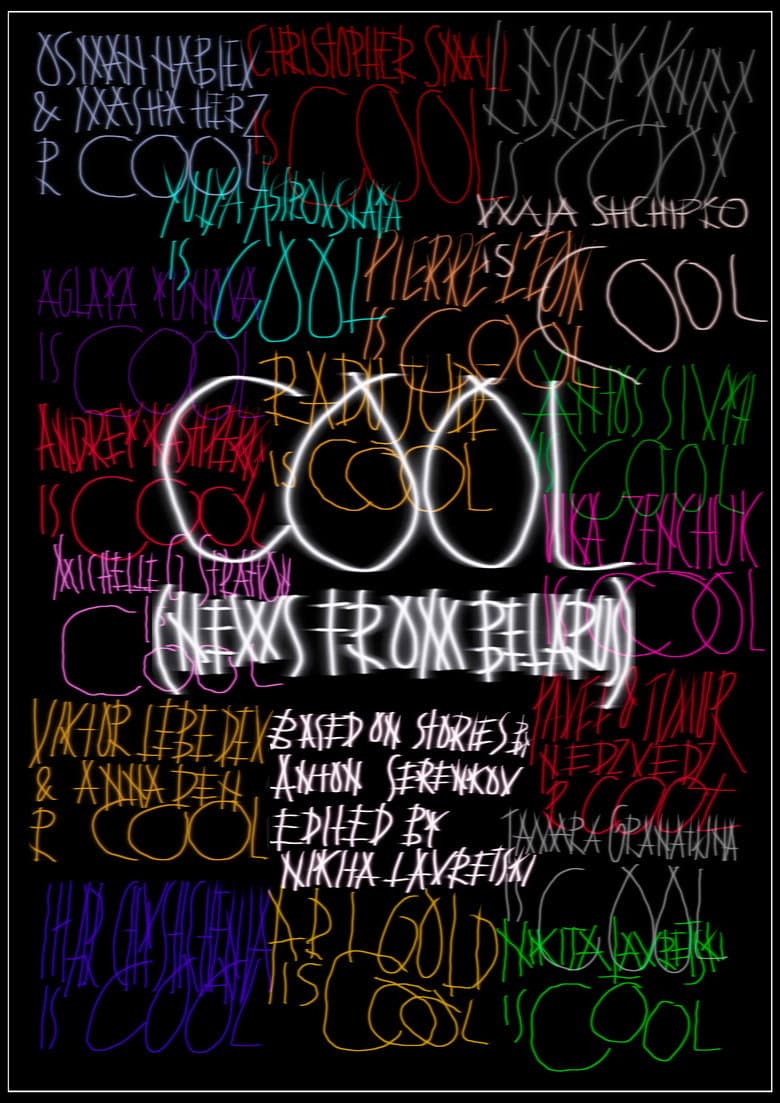 OSMAN NABIEV
& MASHA HERZ
R COOL
CHRISTOPHER SMALL
IS COOL
LESLEY
IS COOL
YULYA
IS COOL
SHCHIPKO
IS COOL
PIERRE LÉON
IS COOL
AGLAYA
IS COOL
RADU JUDE
IS COOL
IS COOL
ANDREY
IS COOL
COOL
VIKA ZENCHUK
IS COOL
MICHELLE
IS COOL
(NEWS FROM BELARUS)
PAVEL & TIMUR
R COOL
VIKTOR LEBEDEV
& ANNA DEN
R COOL
BASED ON STORIES BY
ANTON SERENKOV
EDITED BY
NIKITA LAVRETSKI
TAMARA GRANATKINA
IS COOL
IS COOL
ARI GOLD
IS COOL
NIKITA LAVRETSKI
IS COOL